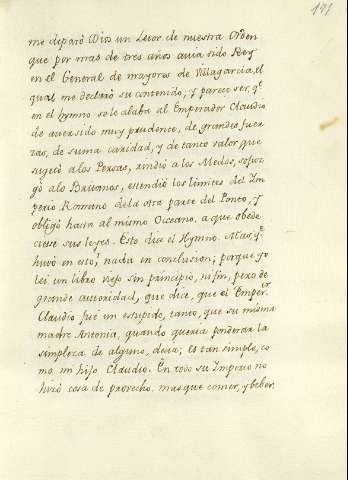 197
me deparó Dios un Letor de nuestra Orden
que por mas de tres años auia sido Rey
en el General de mayores de Villagarcia, el
qual me declaró su contenido; y parece ser, q.e
en el hymno se le alaba al Emperador Claudio
de auer sido muy prudente, de grandes fuer
zas, de suma caridad, y de tanto valor que
sugetó a los Persas, rindió a los Medos, sojuz
gó a los Britanos, estendió los limites del Im
perio Romano de la otra parte del Ponto, y
obligó hasta al mismo Oceano, a que obede
ciesse sus leyes. Esto dice el Hymno. Mas, q.e
huvo en esto; nada en conclusion; porque yo
lei un libro viejo sin principio, ni fin, pero de
grande autoridad, que dice, que el Emper.or
Claudio fué un estupido, tanto, que su misma
madre Antonia, quando queria ponderar la
simpleza de alguno, decia; Es tan simple, co
mo mi hijo Claudio. En todo su Imperio no
hizo cosa de provecho, mas que comer, y beber.